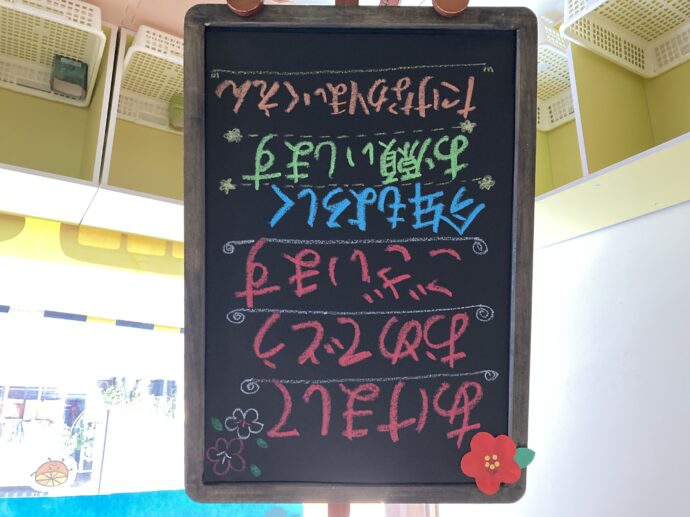 あけまして
おめでとう
ございます
今年もよろしく
お願いします
たけなかほいくえん